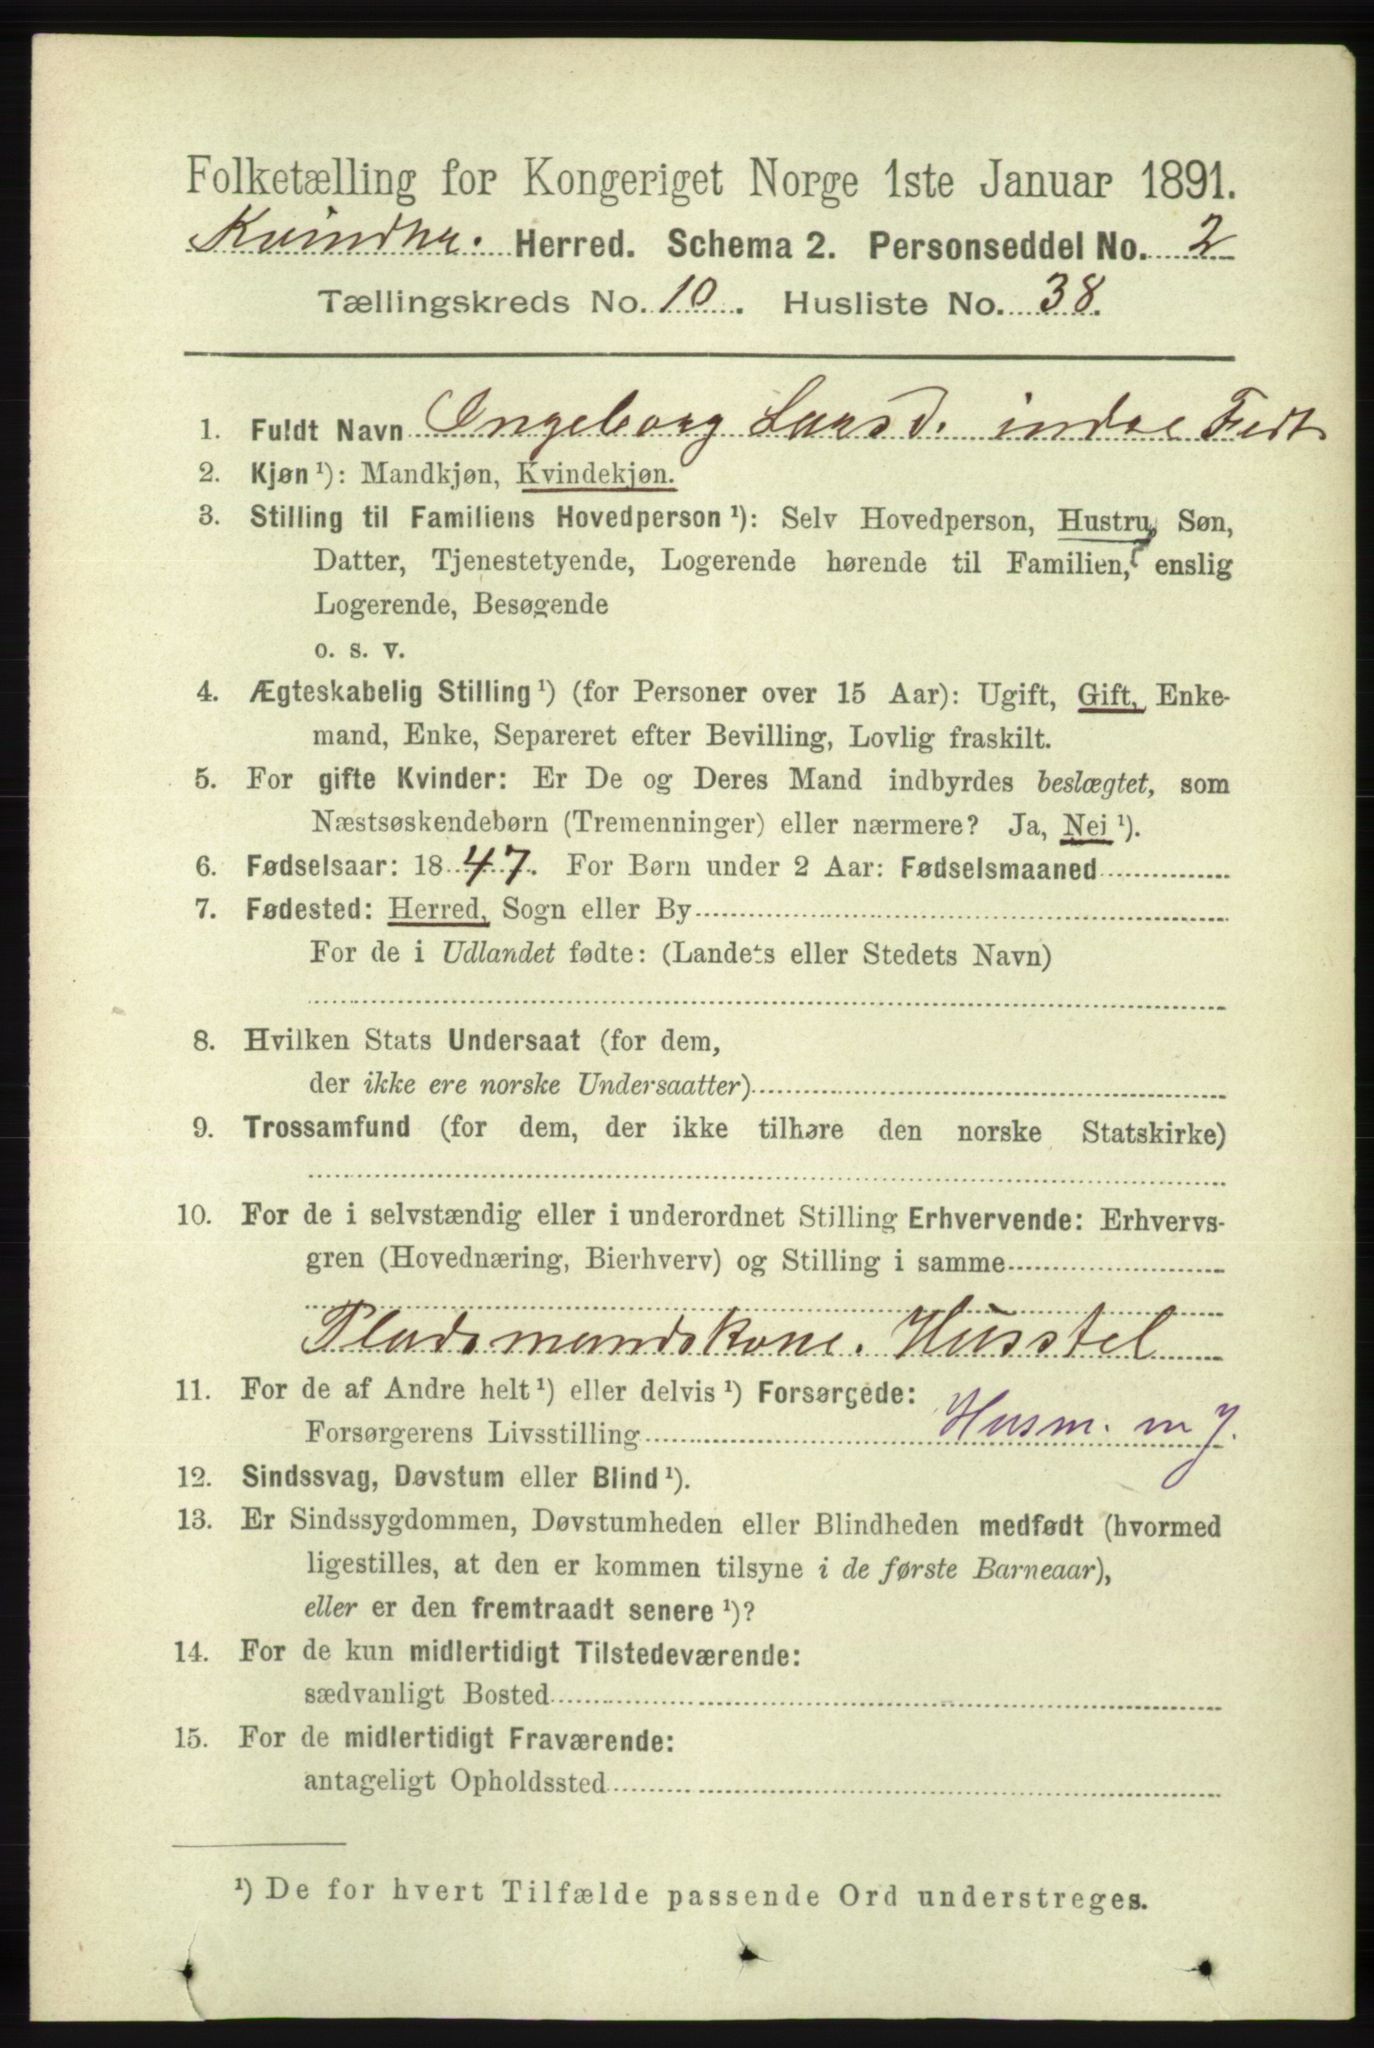 Folketælling for Kongeriget Norge 1ste Januar 1891.
Kvindhr. Herred. Schema 2. Personseddel No. 2
Tællingskreds No. 10. Husliste No. 38.
1. Fuldt Navn Ingeborg Larsd. indre Fedt
2. Kjøn ¹): Mandkjøn, Kvindekjøn.
3. Stilling til Familiens Hovedperson ¹): Selv Hovedperson, Hustru, Søn,
Datter, Tjenestetyende, Logerende hørende til Familien, enslig
Logerende, Besøgende
o. s. v.
4. Ægteskabelig Stilling ¹) (for Personer over 15 Aar): Ugift, Gift, Enke-
mand, Enke, Separeret efter Bevilling, Lovlig fraskilt.
5. For gifte Kvinder: Er De og Deres Mand indbyrdes beslægtet, som
Næstsøskendebørn (Tremenninger) eller nærmere? Ja, Nei ¹).
6. Fødselsaar: 1847. For Børn under 2 Aar: Fødselsmaaned
7. Fødested: Herred, Sogn eller By
For de i Udlandet fødte: (Landets eller Stedets Navn)
8. Hvilken Stats Undersaat (for dem,
der ikke ere norske Undersaatter)
9. Trossamfund (for dem, der ikke tilhøre den norske Statskirke)
10. For de i selvstændig eller i underordnet Stilling Erhvervende: Erhvervs-
gren (Hovednæring, Bierhverv) og Stilling i samme
Pladsmandskone. Husstel
11. For de af Andre helt ¹) eller delvis ¹) Forsørgede:
Forsørgerens Livsstilling Husm. m J.
12. Sindssvag, Døvstum eller Blind ¹).
13. Er Sindssygdommen, Døvstumheden eller Blindheden medfødt (hvormed
ligestilles, at den er kommen tilsyne i de første Barneaar),
eller er den fremtraadt senere ¹)?
14. For de kun midlertidigt Tilstedeværende:
sædvanligt Bosted
15. For de midlertidigt Fraværende:
antageligt Opholdssted
¹) De for hvert Tilfælde passende Ord understreges.